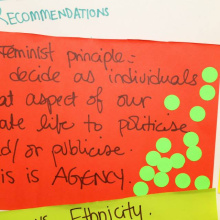 RECOMMENDATIONS
Feminist principle:
decide as individuals
at aspect of our
ate life to politicise
d/or publicise.
is is AGENCY.
vs Ethnicity.